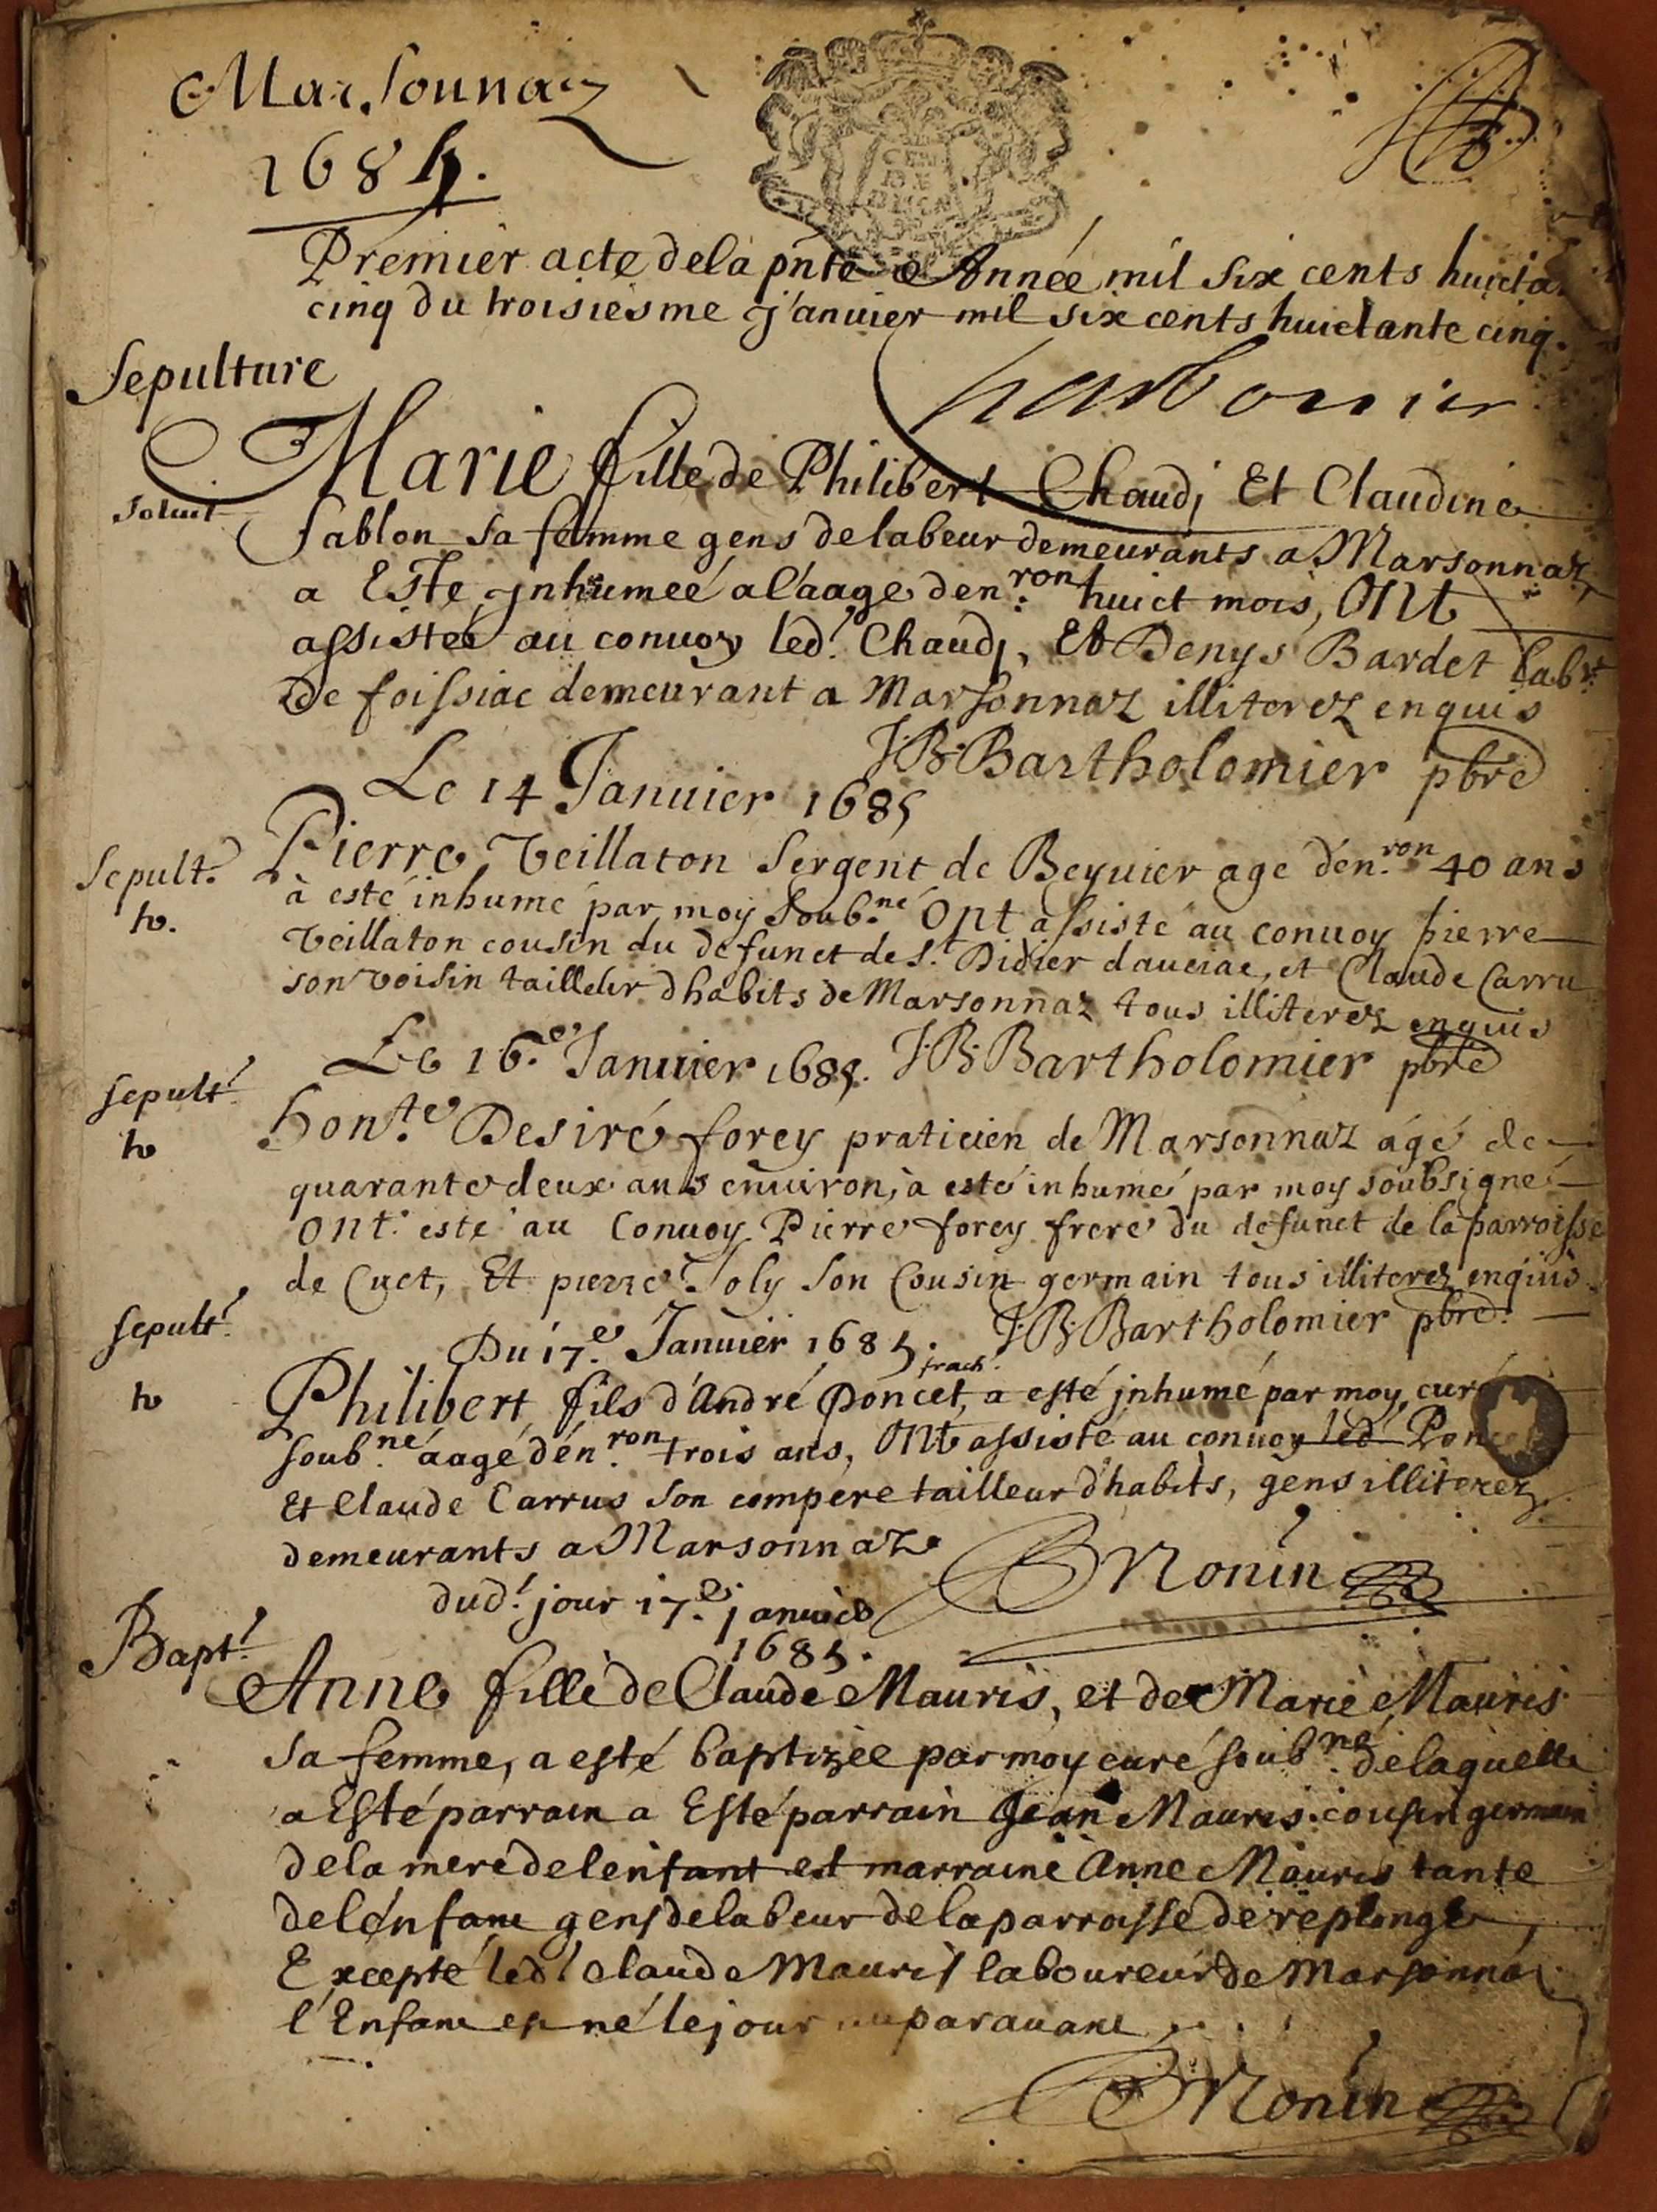 Marsonnaz
1685.
Premier acte de la pnte Année mil six cents huicta
cinq du troisiesme janvier mil six cents huictante cinq.
Charbonier
Sepulture
Marie fille de Philibert Chaudj Et Claudine
soluit
Sablon sa femme gens de labeur demeurants a Marsonnaz,
a Esté jnhumeé a l'aage d'en.ron huict mois, Ont
assisteé au convoy led.t Chaudj, Et Denys Bardet lab.r
de foissiac demeurant a Marsonnaz illiterez enquis
J.B. Bartholomier pbre
Le 14 Janvier 1685
Sepult.
Pierre Veillaton Sergent de Beyvier agé d'en.ron 40 ans
à esté inhumé par moy Soub.né Ont assisté au convoy pierre
Veillaton cousin du defunct de S.t Didier dauciac, et Claude Carru
son voisin tailleur dhabits de Marsonnaz tous illiterez enquis
Le 16.e Janvier 1685. J.B. Bartholomier pbre
sepult.
hon.te Desiré forey praticien de Marsonnaz ágé de
quarante deux ans environ, à esté inhumé par moy soubsigné
Ont esté au Convoy Pierre forey frere du defunct de la parroisse
de Cuet, Et pierre Joly son Cousin germain tous illiterez enquis
sepult.
Du 17.e Janvier 1685. J.B. Bartholomier pbre.
Philibert fils d'André Poncet, a esté jnhumé par moy curé
soub.né áagé d'én.ron trois ans, Ont assisté au convoy led.t Poncet
Et Claude Carrus son compere tailleur d'habits, gens illiterez
demeurants a Marsonnaz
Nonin
dud.t jour 17.e janvier
1685.
Bapt.
Anne fille de Claude Mauris, et de Marie Mauris
sa femme, a esté baptizée par moy curé soub.né de laquelle
a Esté parrain a Esté parrain Jean Mauris cousin germain
de la mere de lenfant et marraine Anne Mauris tante
de lénfant gens de labeur de la parroisse de replonge,
Excepté led.t claude Mauris laboureur de Marsonna
l'Enfant est né le jour auparavant
Nonin